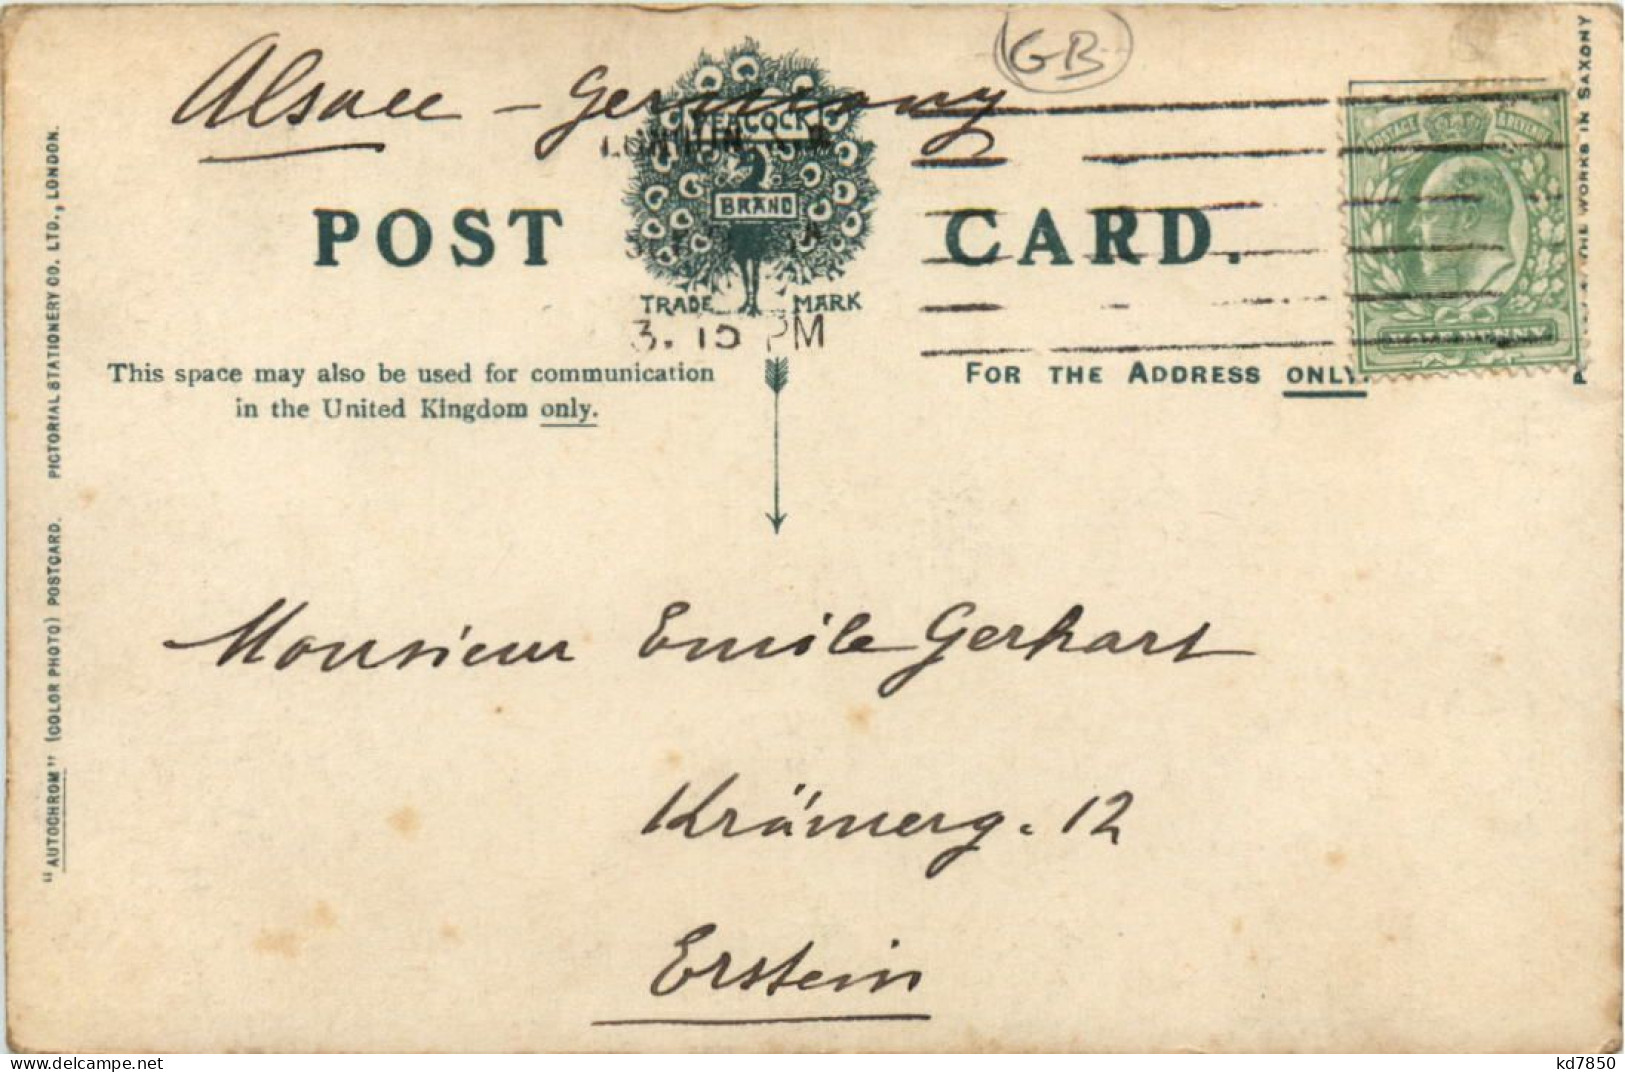 GB
Alsace - Germany
PEACOCK
BRAND
POST CARD.
TRADE MARK
3. 15 PM
POSTAGE & REVENUE
HALFPENNY
This space may also be used for communication
in the United Kingdom only.
FOR THE ADDRESS ONLY.
Monsieur Emile Gerhart
Krämerg. 12
Erstein
"AUTOCHROM" (COLOR PHOTO) POSTCARD. PICTORIAL STATIONERY CO. LTD., LONDON.
THE WORKS IN SAXONY
www.delcampe.net
kd7850